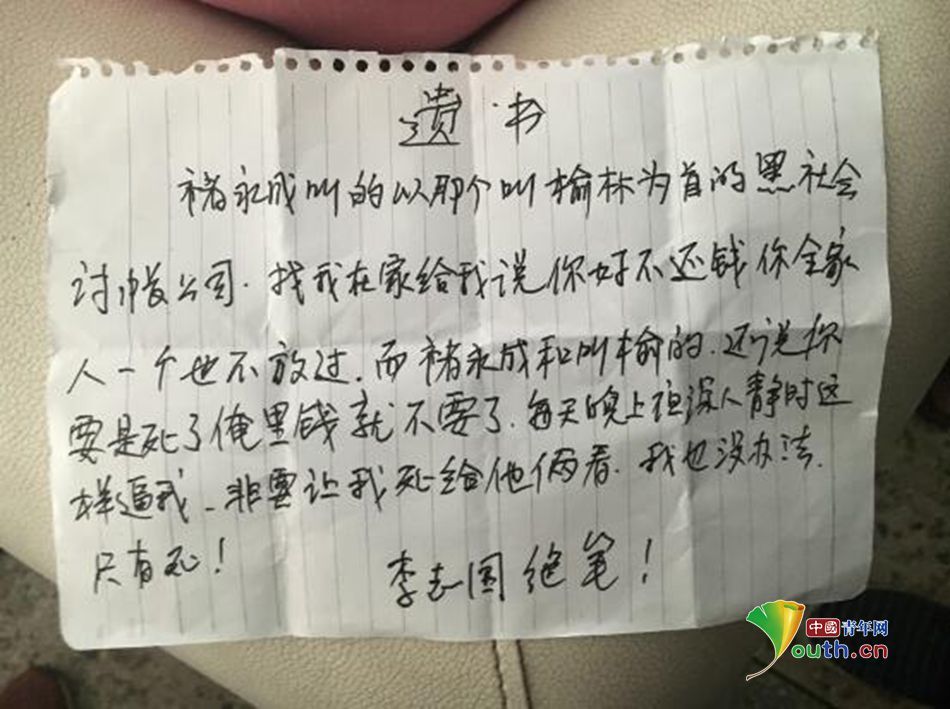 遗书
褚永成叫的以那个叫榆林为首的黑社会
讨账公司.找我在家给我说你好不还钱你全家
人一个也不放过.而褚永成和叫榆的.还说你
要是死了俺里钱就不要了.每天晚上夜深人静时这
样逼我、非要让我死给他俩看.我也没办法.
只有死！
李志国绝笔！
中國青年网
Youth.cn